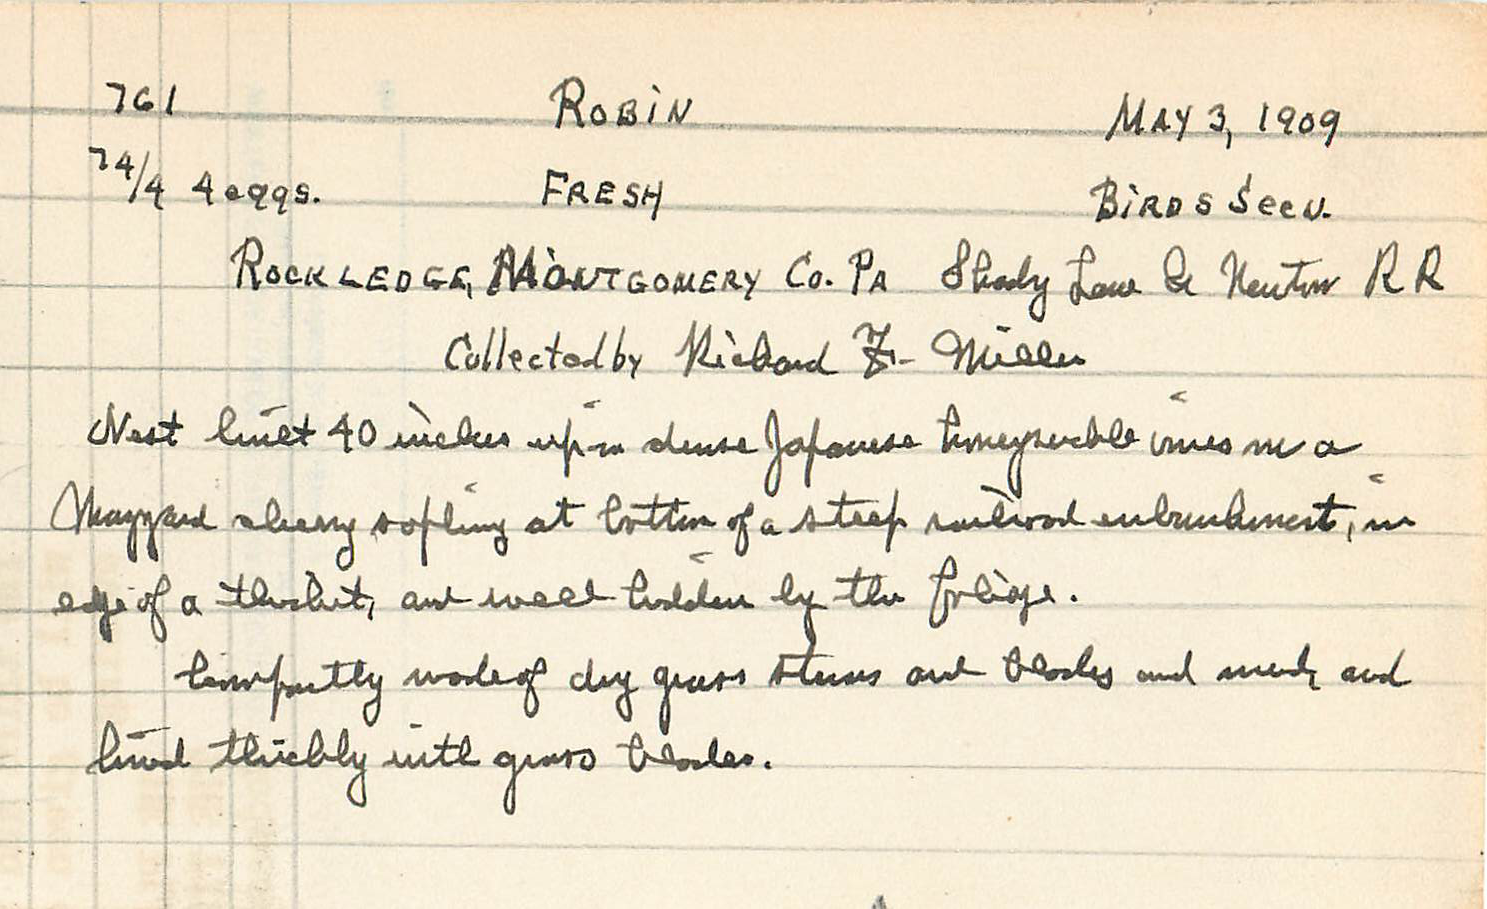 761 ROBIN MAY 3, 1909
74/4 4 eggs. FRESH BIRDS Seen.
ROCKLEDGE, MONTGOMERY Co. PA Shady Lane & Newton R R
Collected by Richard F. Miller
Nest built 40 inches up in dense Japanese honeysuckle vines in a
Mazzard cherry sapling at bottom of a steep railroad embankment, in
edge of a thicket, and well hidden by the foliage.
Compactly made of dry grass stems and blades and mud, and
lined thickly with grass blades.